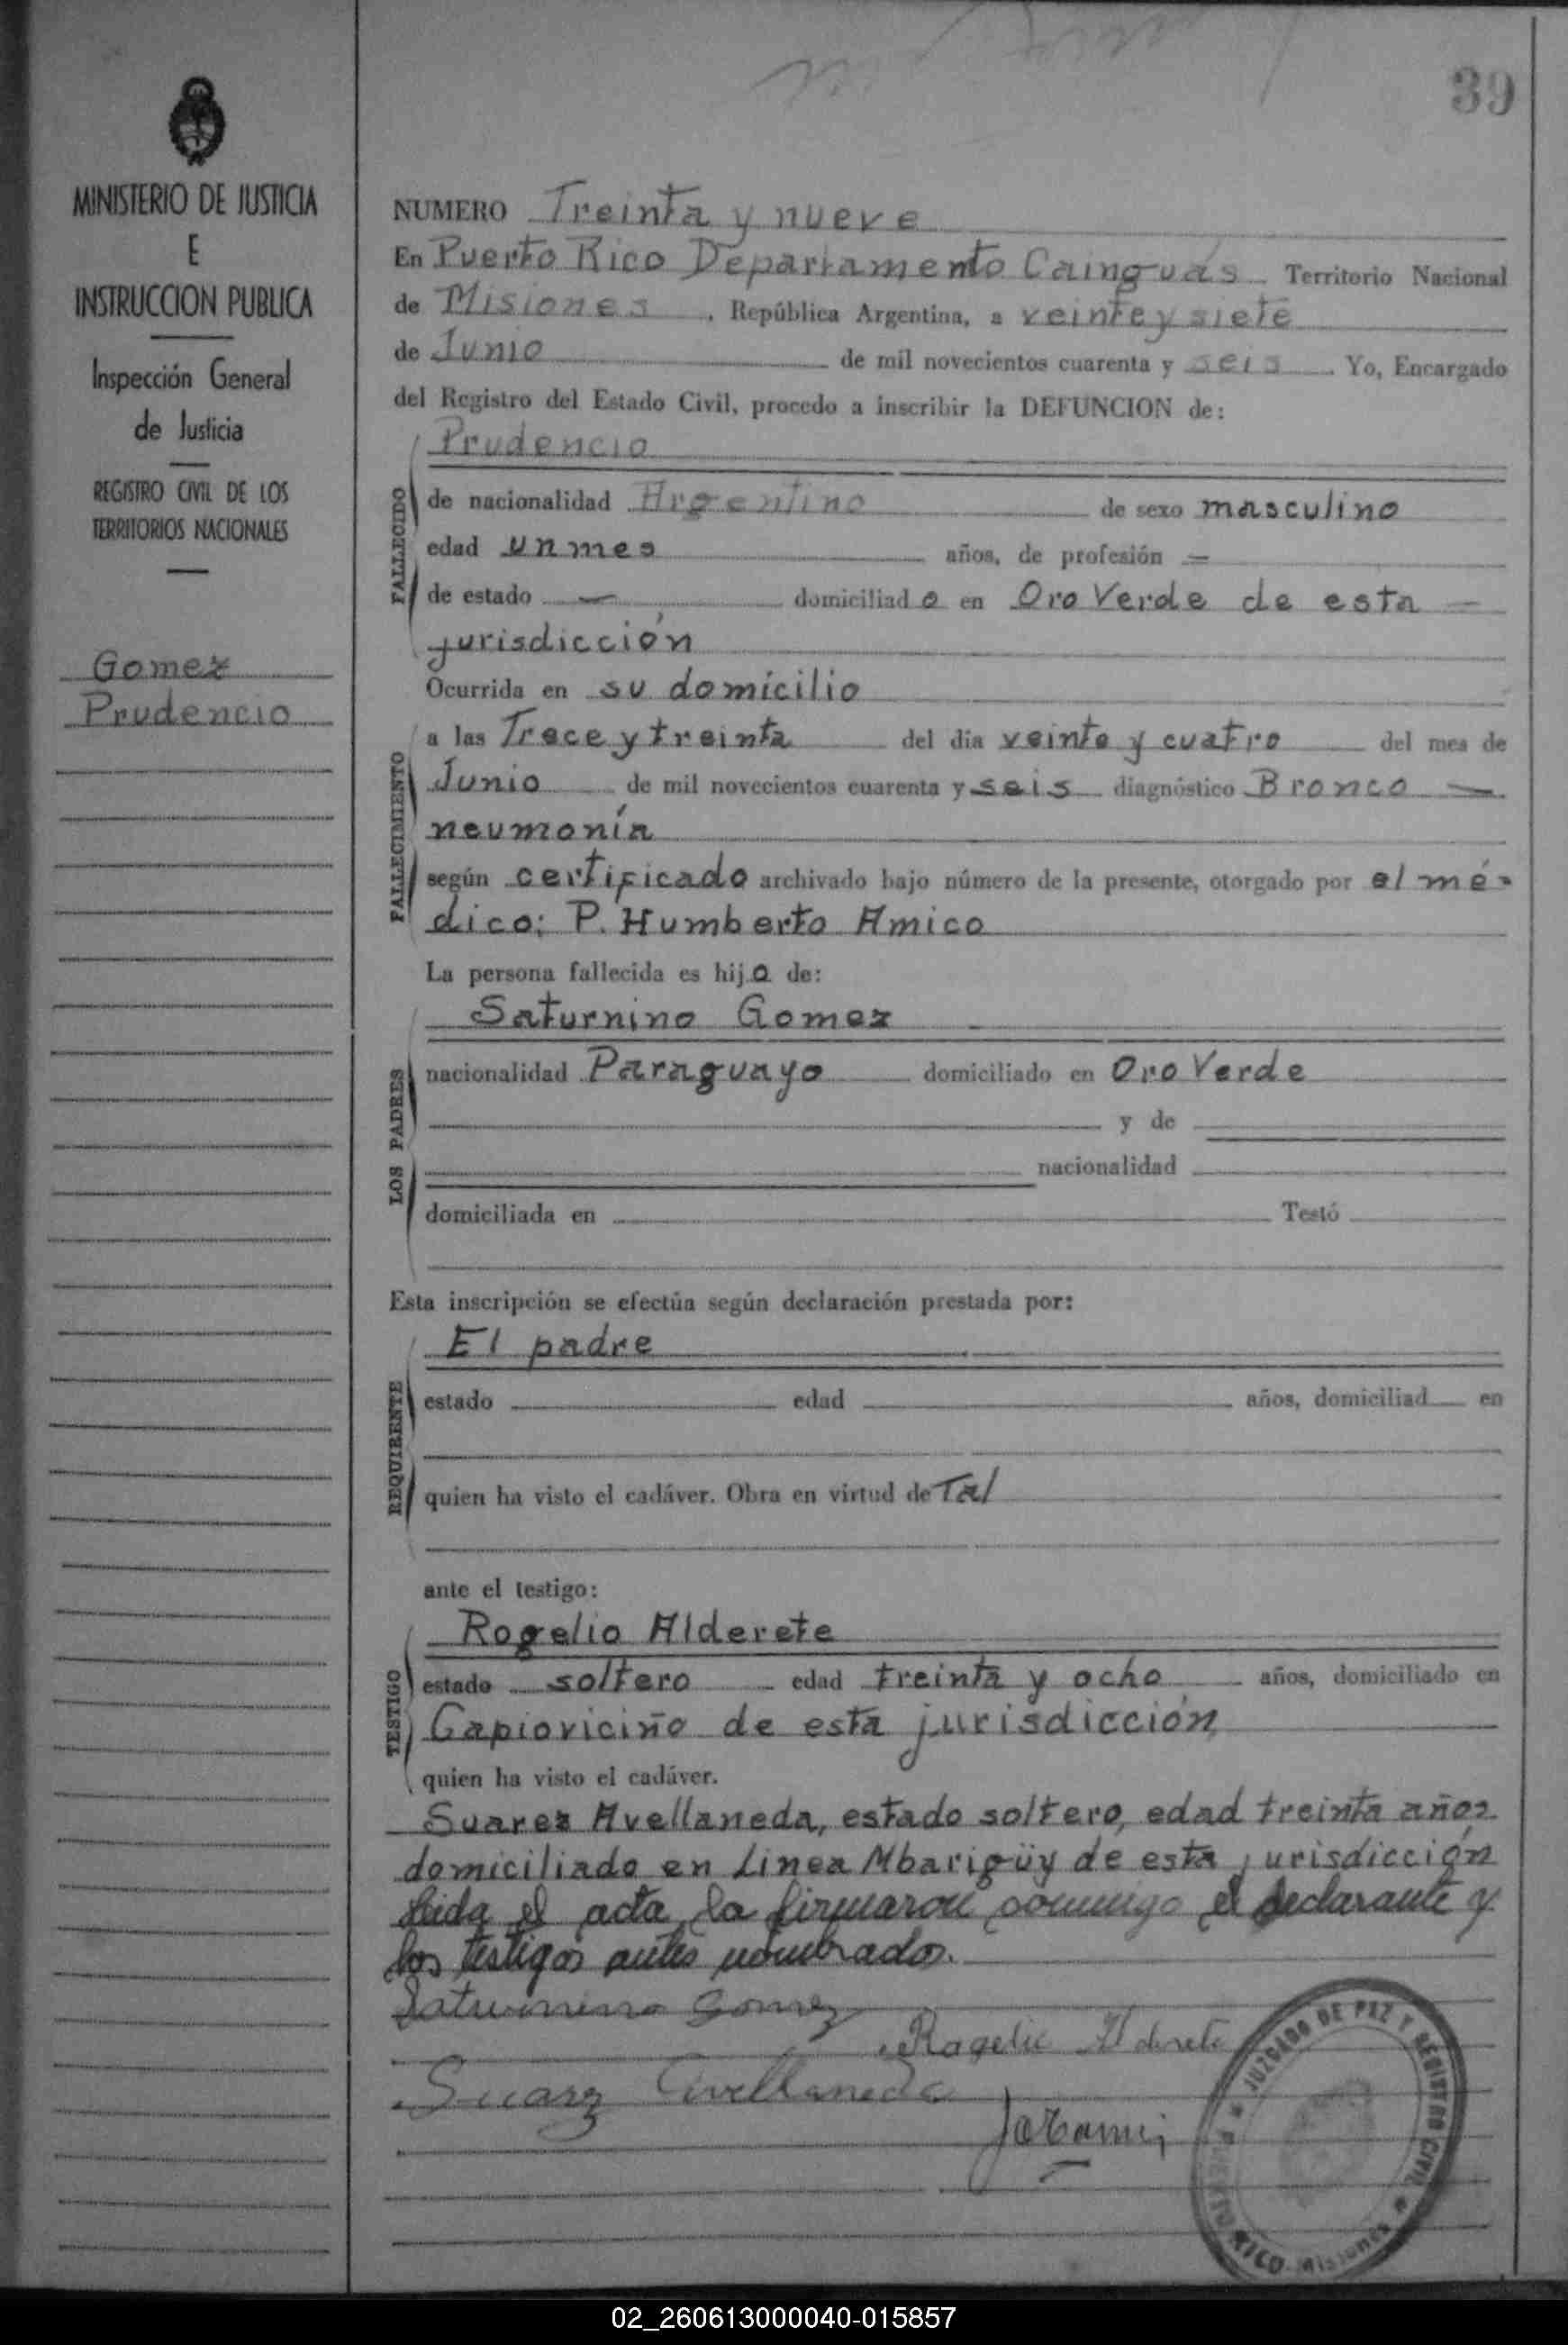 39
MINISTERIO DE JUSTICIA
E
INSTRUCCION PUBLICA
Inspección General
de Justicia
REGISTRO CIVIL DE LOS
TERRITORIOS NACIONALES
Gomez
Prudencio
NUMERO Treinta y nueve
En Puerto Rico Departamento Cainguás Territorio Nacional
de Misiones, República Argentina, a veinte y siete
de Junio de mil novecientos cuarenta y seis. Yo, Encargado
del Registro del Estado Civil, procedo a inscribir la DEFUNCION de:
Prudencio
FALLECIDO
de nacionalidad Argentino de sexo masculino
edad un mes años, de profesión —
de estado — domiciliado en Oro Verde de esta —
jurisdicción
Ocurrida en su domicilio
FALLECIMIENTO
a las Trece y treinta del día veinte y cuatro del mes de
Junio de mil novecientos cuarenta y seis diagnóstico Bronco —
neumonía
según certificado archivado bajo número de la presente, otorgado por el mé-
dico: P. Humberto Amico
La persona fallecida es hijo de:
LOS PADRES
Saturnino Gomez
nacionalidad Paraguayo domiciliado en Oro Verde
y de
nacionalidad
domiciliada en Testó
Esta inscripción se efectúa según declaración prestada por:
REQUIRENTE
El padre
estado edad años, domiciliad en
quien ha visto el cadáver. Obra en virtud de Tal
ante el testigo:
TESTIGO
Rogelio Alderete
estado soltero edad treinta y ocho años, domiciliado en
Capioviciño de esta jurisdicción
quien ha visto el cadáver.
Suarez Avellaneda, estado soltero, edad treinta años
domiciliado en Linea Mbarigüy de esta jurisdicción
Leida el acta la firmaron conmigo el declarante y
los testigos antes nombrados.
Saturnino Gomez
Rogelio Alderete
Suarez Avellaneda
JUZGADO DE PAZ Y REGISTRO CIVIL
PUERTO RICO Misiones
02_260613000040-015857